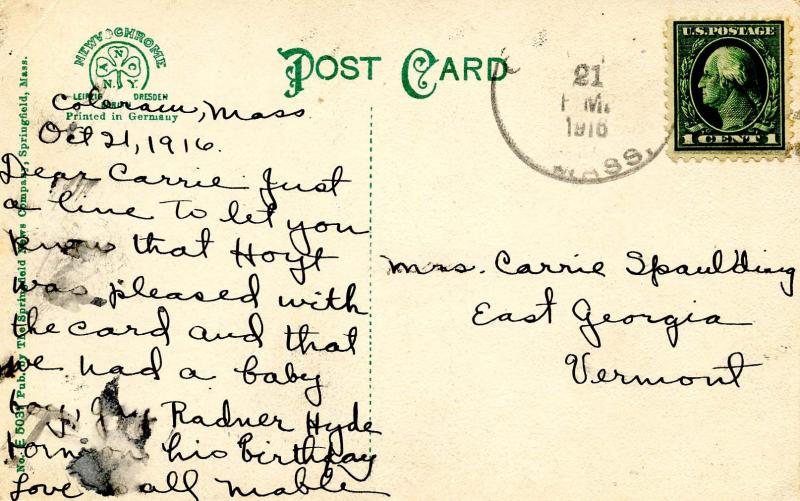 NEWVOCHROME
A N C O
N.Y.
LEIPZIG DRESDEN
BERLIN
Printed in Germany
POST CARD
21
P M
1916
MASS.
U.S. POSTAGE
1 CENT 1
No. E 5031 Pub. by The Springfield News Company, Springfield, Mass.
Colerain, Mass
Oct 21, 1916.
Dear Carrie Just
a line to let you
know that Hoyt
was pleased with
the card and that
we had a baby
boy, Guy Radner Hyde
born on his birthday
Love to all Mable
Mrs. Carrie Spaulding
East Georgia
Vermont